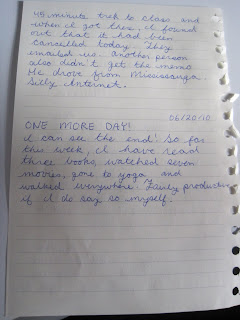 45 minute trek to class and
when I got there, I found
out that it had been
cancelled today. They
emailed us. Another person
also didn't get the memo.
He drove from Mississauga.
Silly Internet.
06/20/10
ONE MORE DAY!
I can see the end! So far
this week, I have read
three books, watched seven
movies, gone to yoga and
walked everywhere. Fairly productive
if I do say so myself.